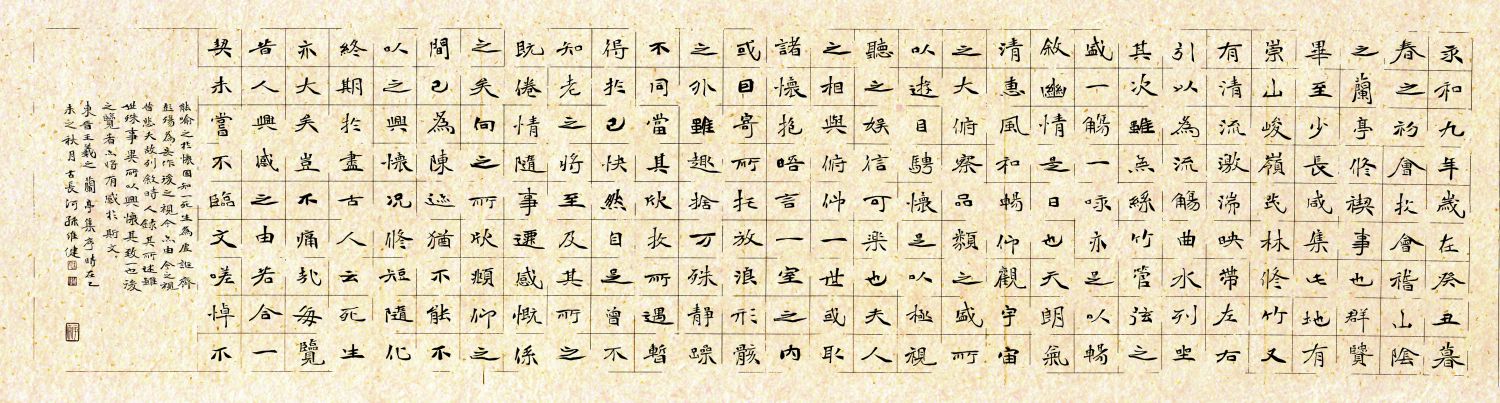 永和九年歲在癸丑暮
春之初會於會稽山陰
之蘭亭修禊事也群賢
畢至少長咸集此地有
崇山峻嶺茂林修竹又
有清流激湍映帶左右
引以為流觴曲水列坐
其次雖無絲竹管弦之
盛一觴一詠亦足以暢
敘幽情是日也天朗氣
清惠風和暢仰觀宇宙
之大俯察品類之盛所
以遊目騁懷足以極視
聽之娛信可樂也夫人
之相與俯仰一世或取
諸懷抱晤言一室之內
或因寄所托放浪形骸
之外雖趣捨万殊靜躁
不同當其欣於所遇暫
得於己快然自足曾不
知老之將至及其所之
既倦情隨事遷感慨係
之矣向之所欣頫仰之
間已為陳迹猶不能不
以之興懷況修短隨化
終期於盡古人云死生
亦大矣豈不痛哉每覽
昔人興感之由若合一
契未嘗不臨文嗟悼不
能喻之於懷固知一死生為虛誕齊
彭殤為妄作後之視今亦由今之視
昔悲夫故列敘時人錄其所述雖
世殊事異所以興懷其致一也後
之覽者亦將有感於斯文
東晉王羲之蘭亭集序時在乙
未之秋月古長河孫維健